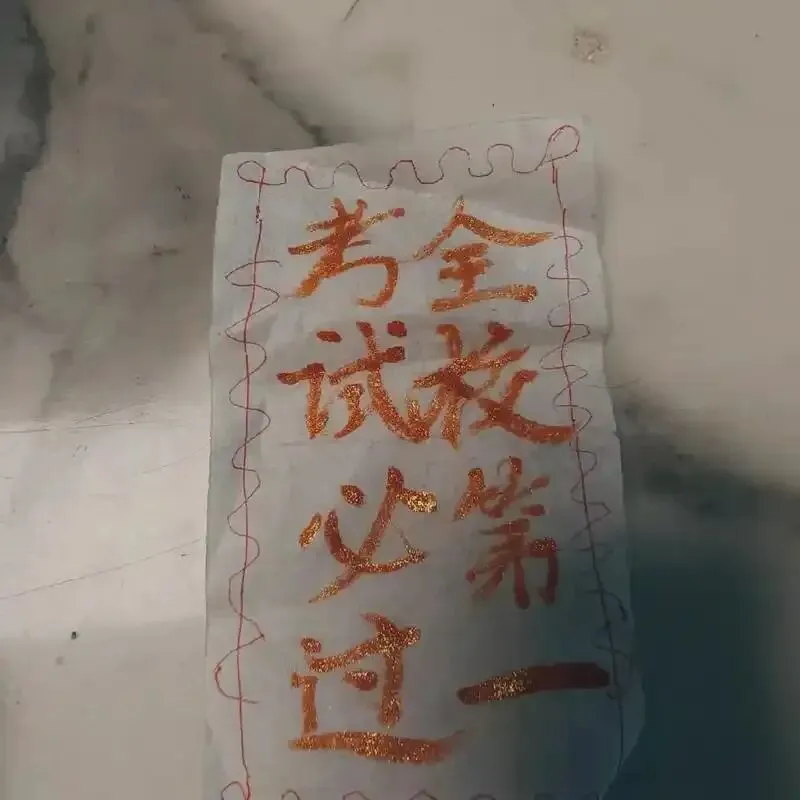 全校第一
考试必过